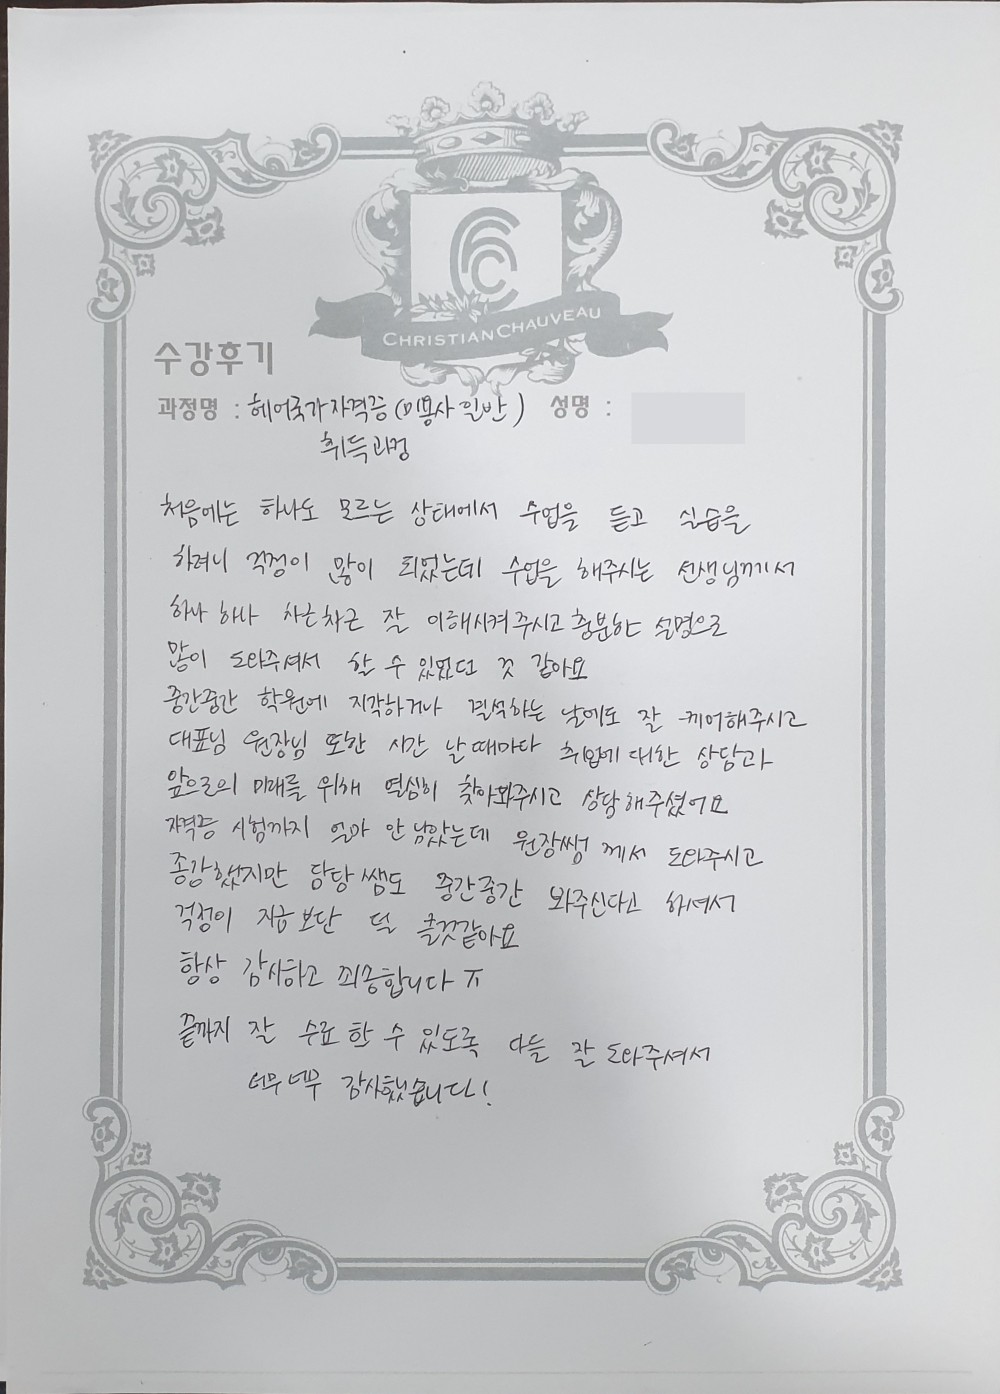 CHRISTIAN CHAUVEAU
수강후기
과정명 : 헤어국가자격증(미용사 일반) 성명 :
취득과정
처음에는 하나도 모르는 상태에서 수업을 듣고 실습을
하려니 걱정이 많이 되었는데 수업을 해주시는 선생님께서
하나 하나 차근차근 잘 이해시켜주시고 충분한 설명으로
많이 도와주셔서 할 수 있었던 것 같아요
중간중간 학원에 지각하거나 결석하는 날에도 잘 케어해주시고
대표님 원장님 또한 시간 날때마다 취업에 대한 상담과
앞으로의 미래를 위해 열심히 찾아와주시고 상담해주셨어요
자격증 시험까지 얼마 안남았는데 원장쌤께서 도와주시고
종강했지만 담당쌤도 중간중간 봐주신다고 하셔서
걱정이 지금보단 덜 할것같아요
항상 감사하고 죄송합니다 ㅠ
끝까지 잘 수료 할 수 있도록 다들 잘 도와주셔서
너무너무 감사했습니다!